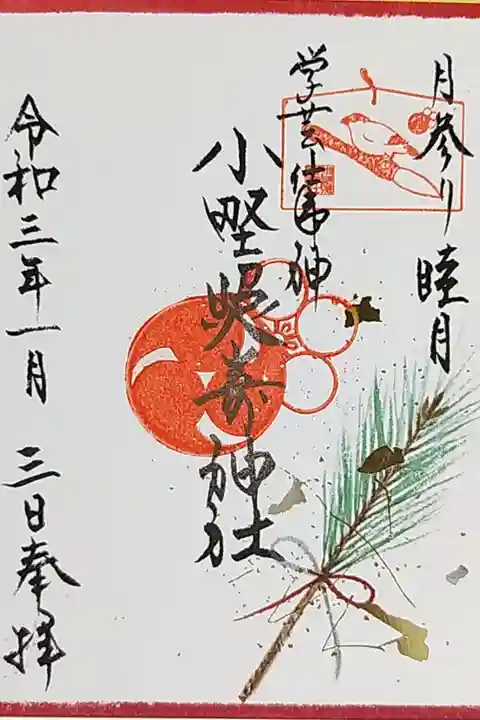 月参り 睦月
学芸
神
小野照崎神社
令和三年一月 三日奉拝